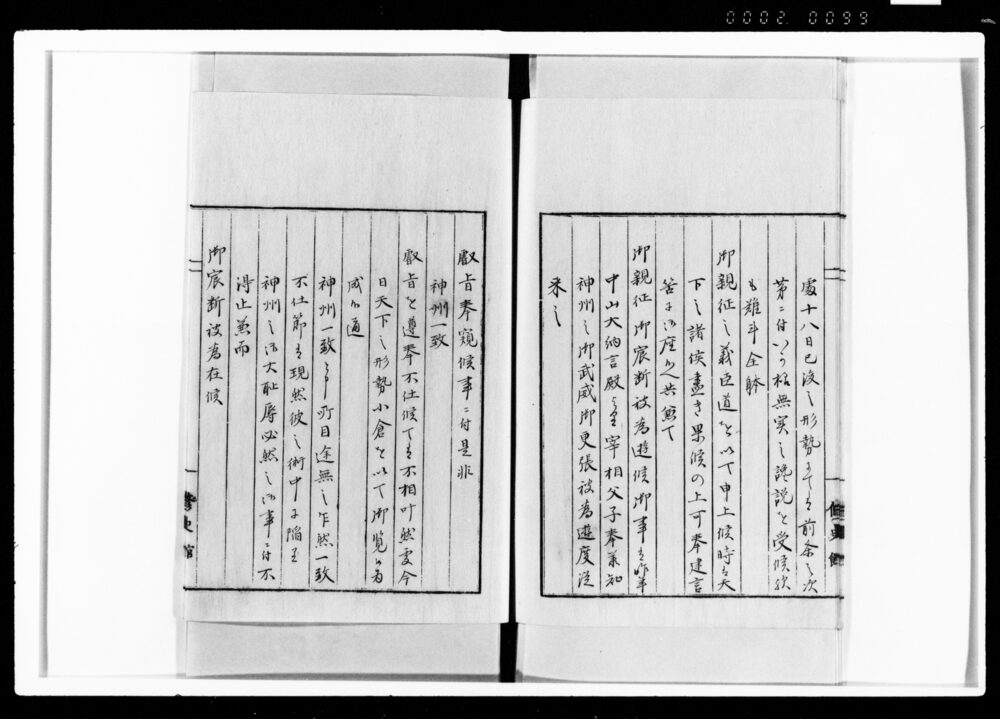 0002.0099
處十八日已後之形勢ニても前条之次
第ニ付いつ相無実之讒説を受候欤
も難斗全躰
御親征之義臣道を以て申上候時ハ天
下之諸侯盡き果候の上可奉建言
筈ニ御座候へ共無て
御親征御宸断被為遊候御事ハ昨年
中山大納言殿ゟ宰相父子奉兼知
神州之御武威御更張被為遊度従
来之
叡旨奉窺候事ニ付是非
神州一致
叡旨を遵奉不仕候てハ不相叶然處今
日天下之形勢小倉を以て御覧可為
成候通
神州一致之目途無之乍然一致
不仕節ハ現然彼之術中ニ陥至
神州之御大耻辱必然之御事ニ付不
得止兼而
御宸断被為在候
修史館
修史館